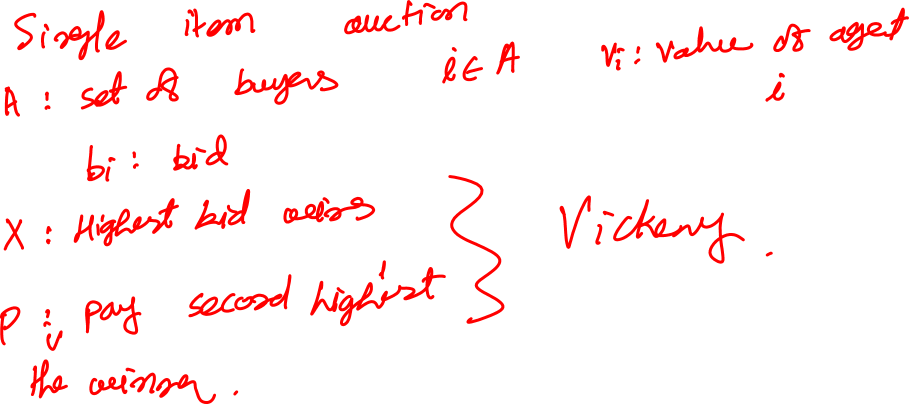 Single item auction
A : set of buyers i ∈ A vi : value of agent i
bi : bid
X : Highest bid wins
P : pay second highest
the winner.
Vickery.